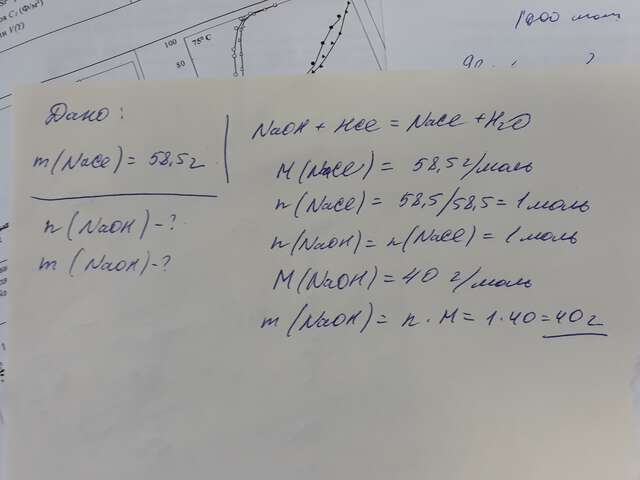 1000 мол
100
75°C
80
Дано:
m(NaCl) = 58,5 г
n(NaOH) - ?
m(NaOH) - ?
NaOH + HCl = NaCl + H2O
M(NaCl) = 58,5 г/моль
n(NaCl) = 58,5/58,5 = 1 моль
n(NaOH) = n(NaCl) = 1 моль
M(NaOH) = 40 г/моль
m(NaOH) = n · M = 1·40 = 40 г